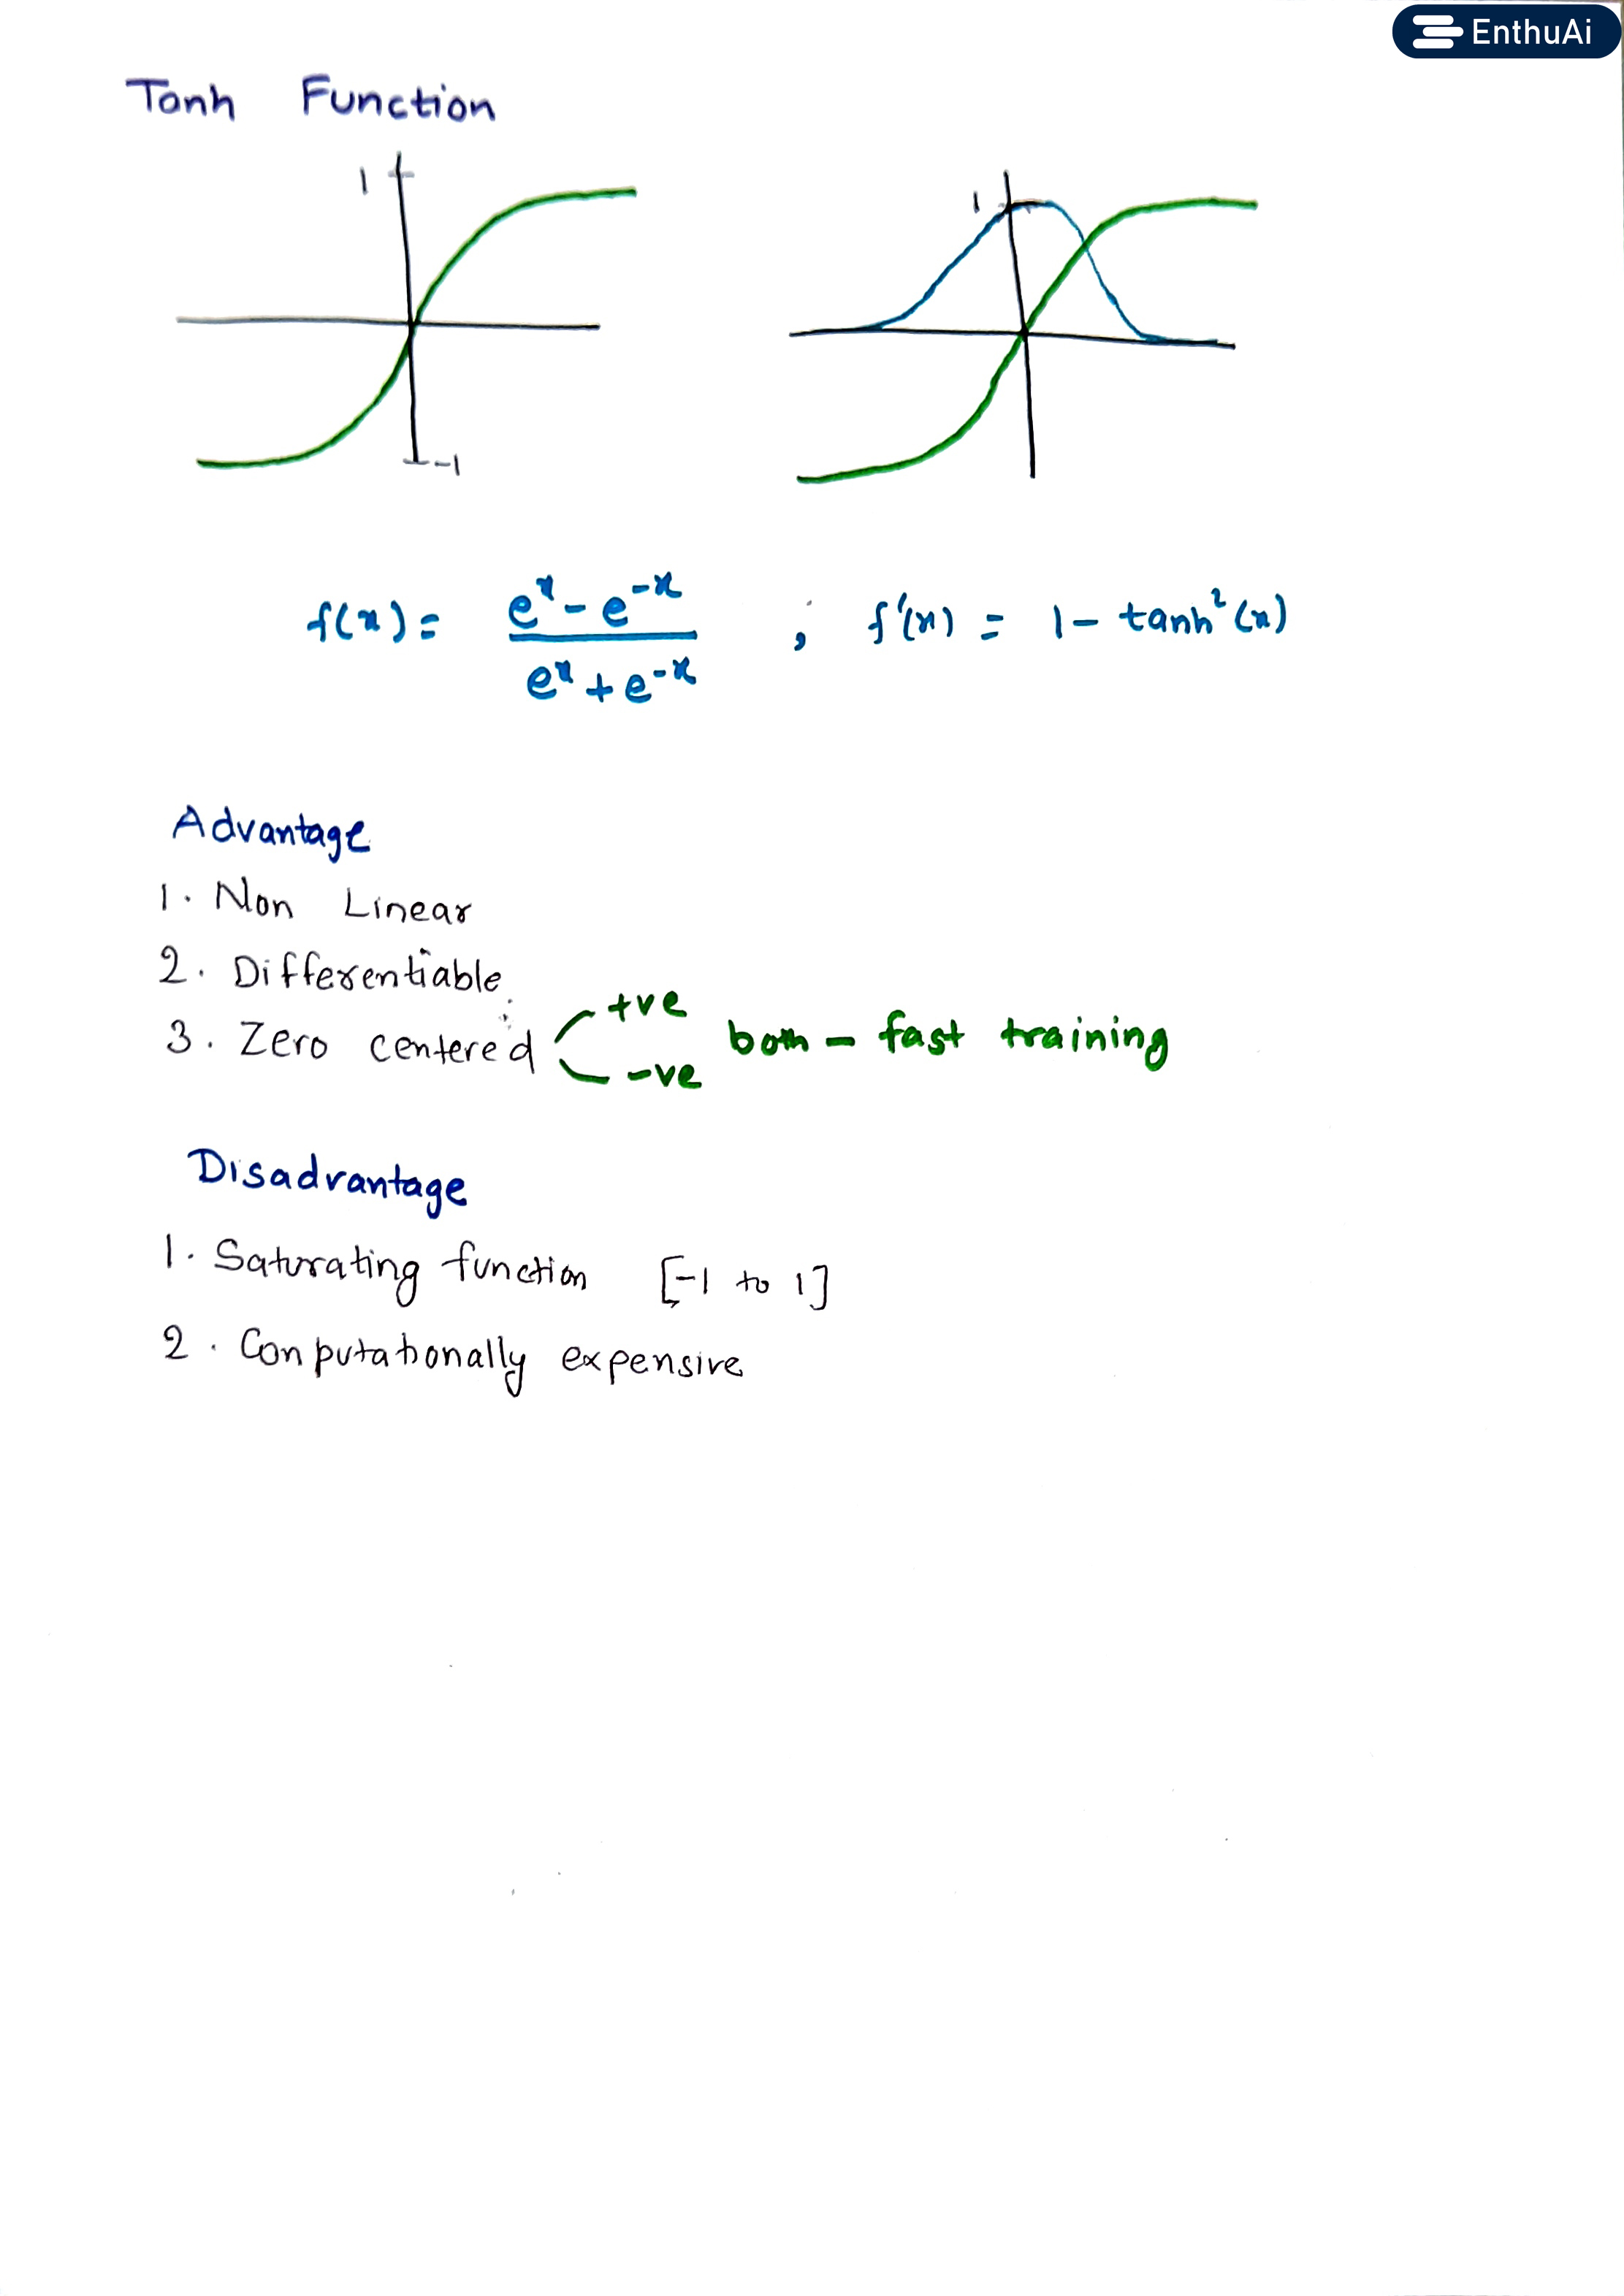 EnthuAi
Tanh Function
1
-1
1
f(x) = e^x - e^-x / e^x + e^-x , f'(x) = 1 - tanh²(x)
Advantage
1. Non Linear
2. Differentiable
3. Zero centered +ve -ve both - fast training
Disadvantage
1. Saturating function [-1 to 1]
2. Computationally expensive